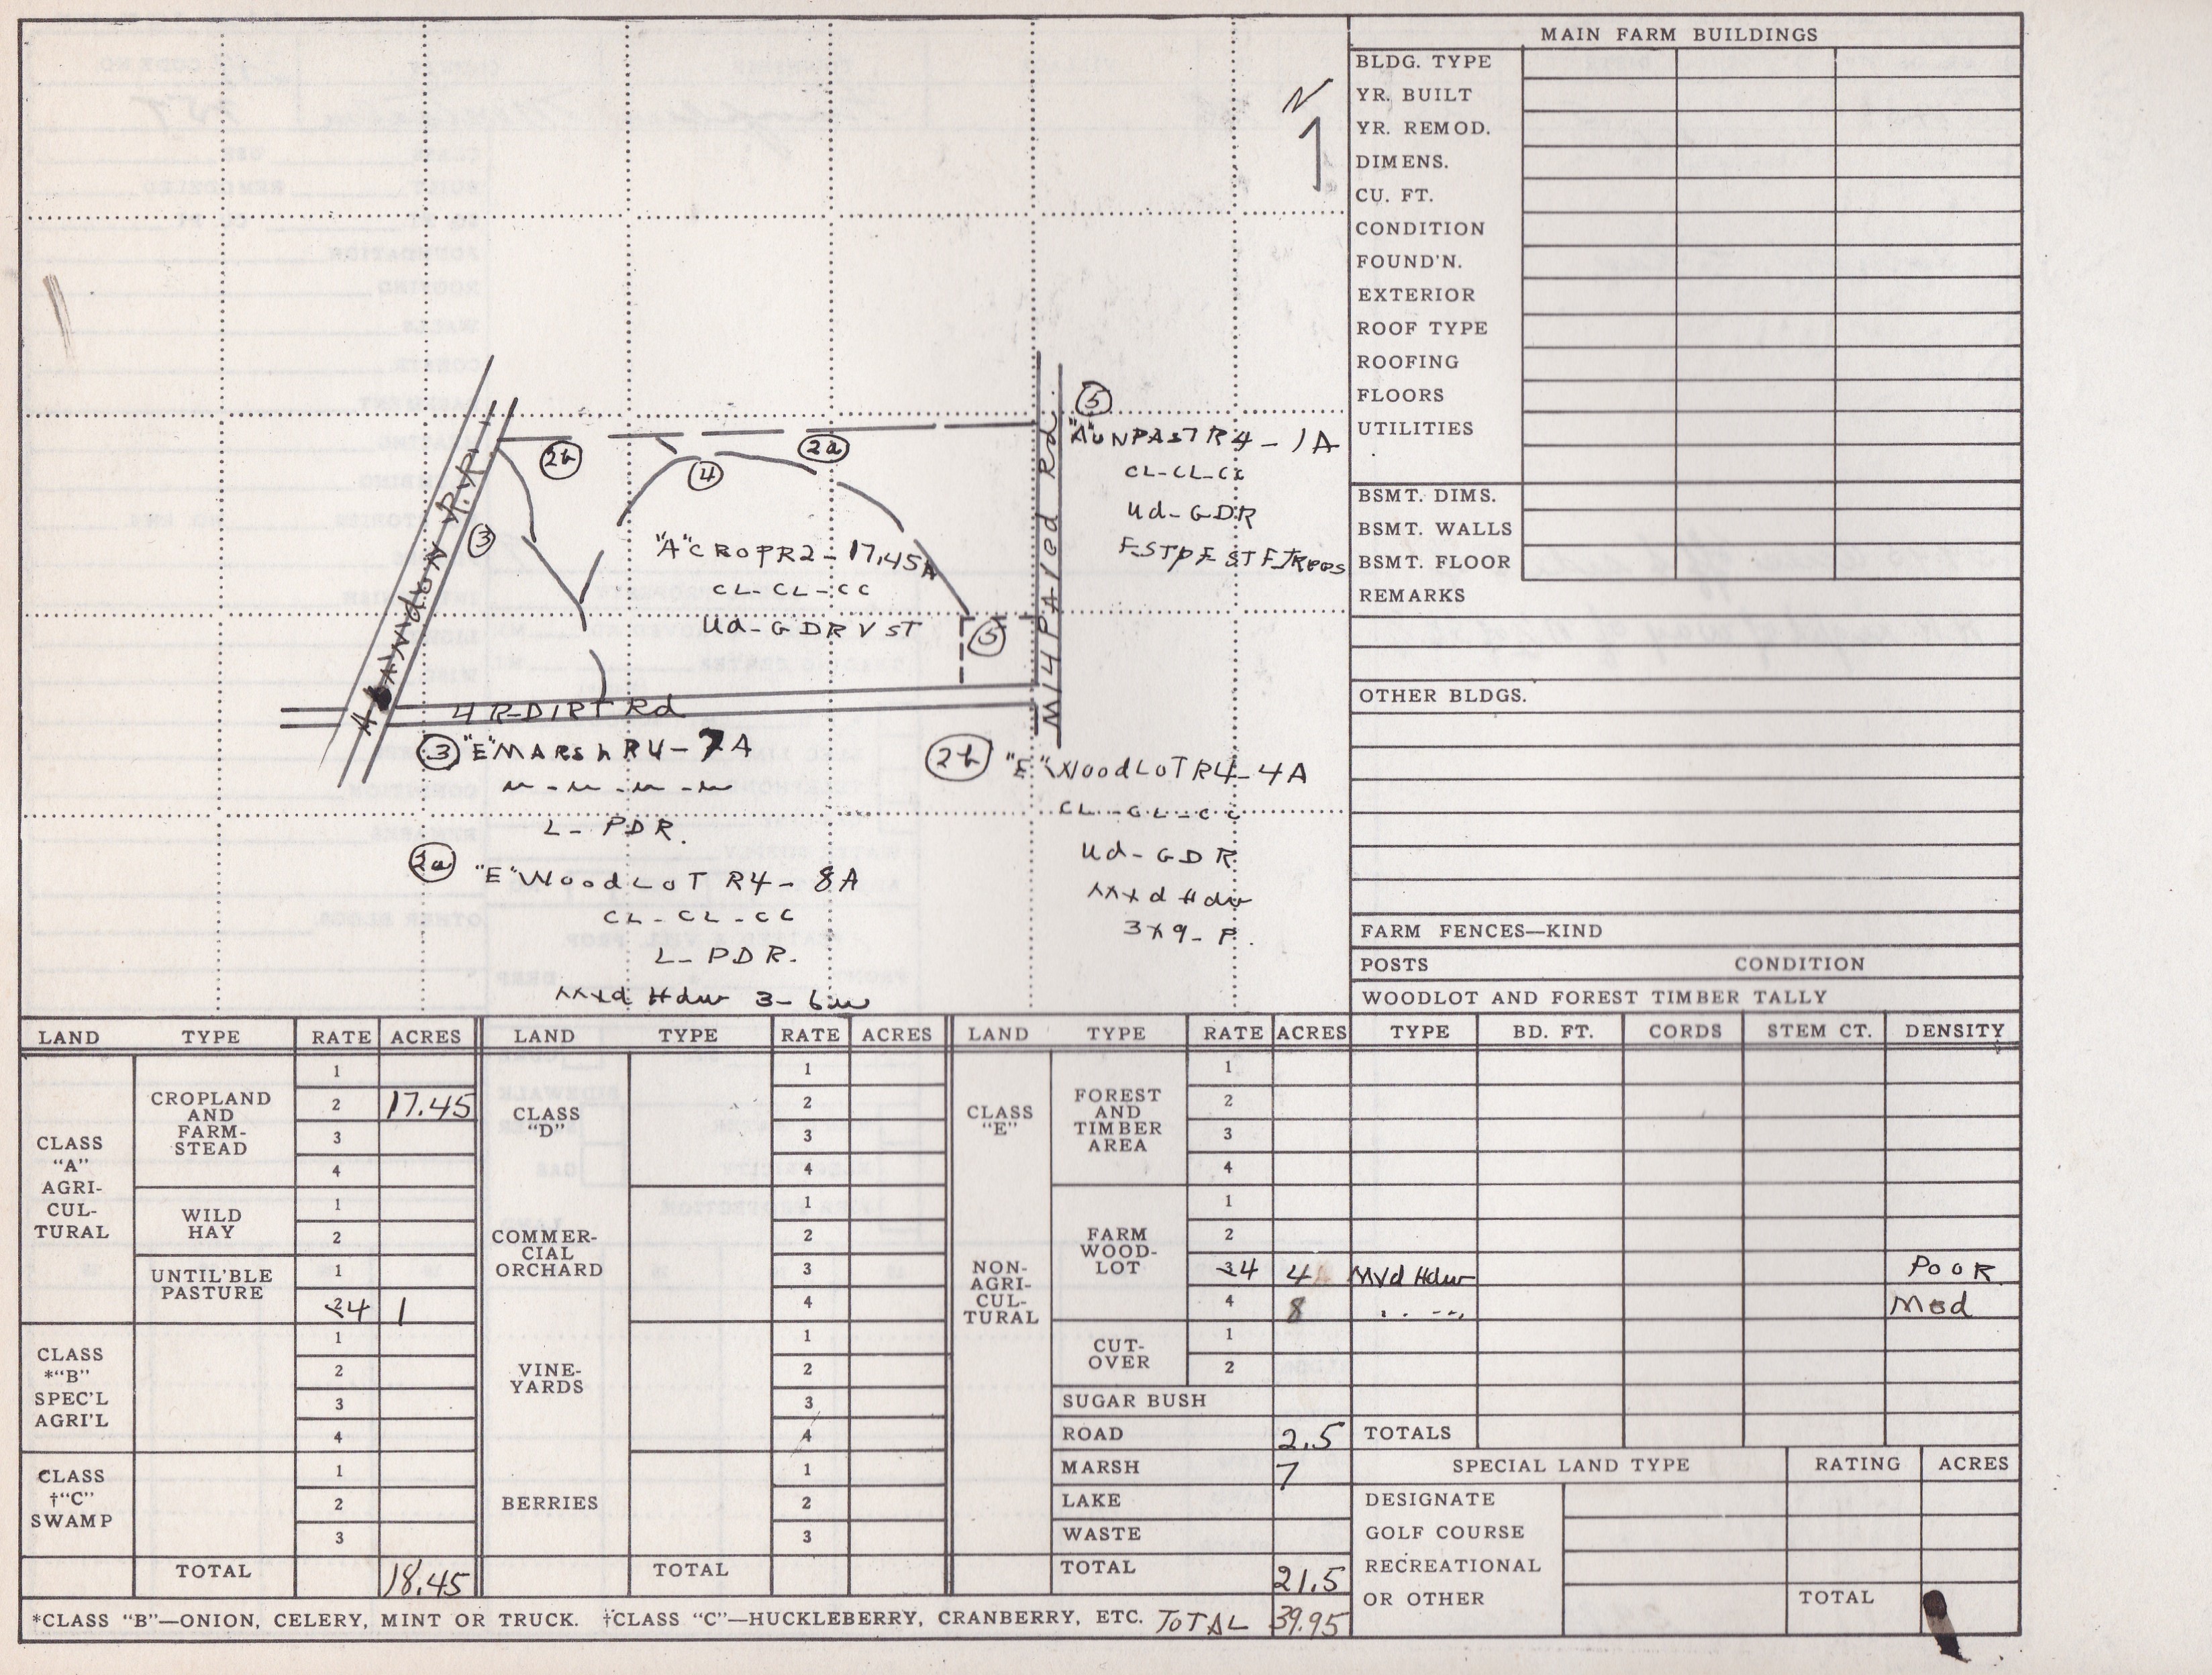 N
2b
2a
4
3
ABANdON R.R.
"A" CROP R2 - 17.45A
CL - CL - CC
Ud - GDR V ST
5
M14 PAVed Rd
4 R-DIRT Rd
5
"A" UNPAST R4 - 1A
CL - CL - CC
Ud - GDR
3 "E" MARsh R4 - 7A
m - m - m - m
L - PDR
2a "E" WoodLoT R4 - 8A
CL - CL - CC
L - PDR.
Mxd Hdw 3 - 6
2b "E" WoodLoT R4 - 4A
CL - CL - CC
Ud - GDR
Mxd Hdw
3 x 9 - P.
MAIN FARM BUILDINGS
BLDG. TYPE
YR. BUILT
YR. REMOD.
DIMENS.
CU. FT.
CONDITION
FOUND'N.
EXTERIOR
ROOF TYPE
ROOFING
FLOORS
UTILITIES
BSMT. DIMS.
BSMT. WALLS
BSMT. FLOOR
REMARKS
OTHER BLDGS.
FARM FENCES—KIND
POSTS CONDITION
WOODLOT AND FOREST TIMBER TALLY
LAND TYPE RATE ACRES
CLASS "A" AGRI-CUL-TURAL
CROPLAND AND FARM-STEAD
1
2 17.45
3
4
WILD HAY
1
2
UNTIL'BLE PASTURE
1
2 4 1
CLASS *"B" SPEC'L AGRI'L
1
2
3
4
CLASS †"C" SWAMP
1
2
3
TOTAL 18.45
LAND TYPE RATE ACRES
CLASS "D"
1
2
3
4
COMMER-CIAL ORCHARD
1
2
3
4
VINE-YARDS
1
2
3
4
BERRIES
1
2
3
TOTAL
LAND TYPE RATE ACRES TYPE BD. FT. CORDS STEM CT. DENSITY
CLASS "E"
NON-AGRI-CUL-TURAL
FOREST AND TIMBER AREA
1
2
3
4
FARM WOOD-LOT
1
2
3 4 4 Mxd Hdw PooR
4 8 " " Med
CUT-OVER
1
2
SUGAR BUSH
ROAD 2.5 TOTALS
MARSH 7
LAKE
WASTE
TOTAL 21.5
SPECIAL LAND TYPE RATING ACRES
DESIGNATE
GOLF COURSE
RECREATIONAL
OR OTHER TOTAL
*CLASS "B"—ONION, CELERY, MINT OR TRUCK. †CLASS "C"—HUCKLEBERRY, CRANBERRY, ETC. TOTAL 39.95